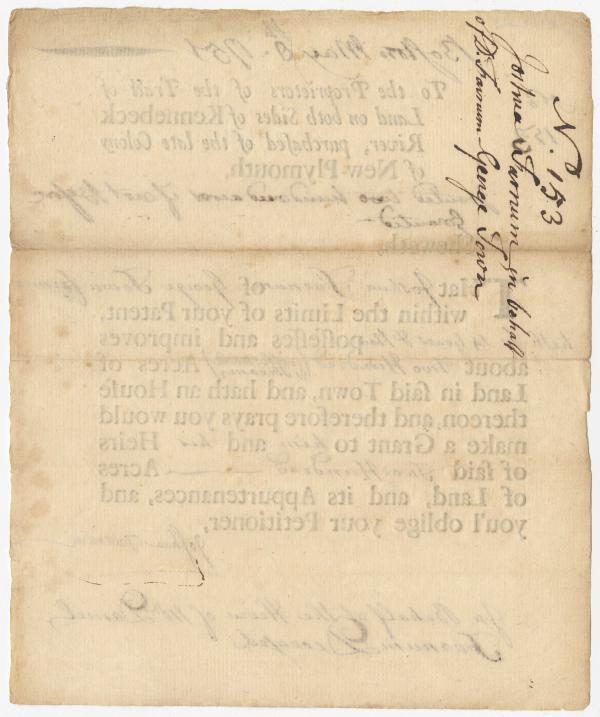 N. 153
Joshua Farnum in behalf
of D. Farnum George Town
Boston May 8th 1751
To the Proprietors of the Tract of
Land on both Sides of Kennebeck
River, purchased of the late Colony
of New Plymouth,
two hundred acres if not before
Granted
Sheweth,
THat Joshua Farnum of George Town
within the Limits of your Patent,
possesses and improves
about two Hundred Acres of
Land in said Town, and hath an House
thereon, and therefore prays you would
make a Grant to him and his Heirs
of said two Hundred Acres
of Land, and its Appurtenances, and
you'l oblige your Petitioner,
Joshua Farnum
In Behalf of the Heirs of Mr Daniel
Farnum Deceased